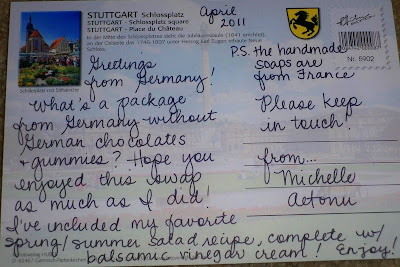 STUTTGART Schlossplatz
STUTTGART - Schlossplatz square
STUTTGART - Place du Château
In der Mitte des Schlossplatzes steht die Jubiläumssäule (1841 errichtet),
an der Ostseite das 1746-1807 unter Herzog Karl Eugen erbaute Neue
Schloss.
Schillerplatz mit Stiftskirche
April
2011
Nr. 5902
Greetings
from Germany!
What's a package
from Germany without
German chocolates
+ gummies? Hope you
enjoyed this swap
as much as I did!
I've included my favorite
spring/summer salad recipe, complete w/
balsamic vinegar cream! Enjoy!
P.S. the handmade
soaps are
from France
Please keep
in touch!
from...
Michelle
Aetonu